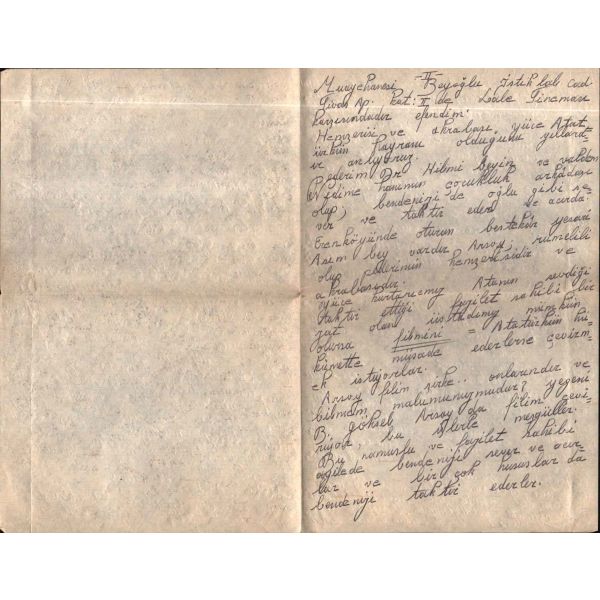 II
Muayehanesi Beyoğlu İstiklâl cad
Sivas Ap. kat: II de Lâle Sineması
karşısındadır efendim.
Hemşerisi ve akrabası yüce Atat
ürkün hayranı olduğunu yıllard
ır anlıyoruz.
Pederim Dr. Hilmi beyin ve validem
Nedime hanımın çocukluk arkadaşı
olup; bendenizi de oğlu gibi se-
ver ve taktir eder ve acırda.
Erenköyünde oturan bestekâr yesari
Asım bey vardır Arsoy, rumelili
olup pederimin hemşerisidir ve
akrabasıdır.
Yüce kurtarıcımız Atanın sevdiği
taktir ettiği fazilet sahibi bir
zat olan üstadımız mümkün
olursa filmini = Atatürkün hü
kümette müsade ederlerse çevirm-
ek istiyorlar.
Arsoy filim şirke.. onlarındır ve
bilmem malumunuzmudur? yeğeni
B. Göksel Arsoy da filim çevi-
riyor, bu işlerle meşgüller.
Bu namuslu ve fazilet sahibi
ailede bendenizi sever ve acır
lar ve bir çok hususlar da
bendenizi taktir ederler.